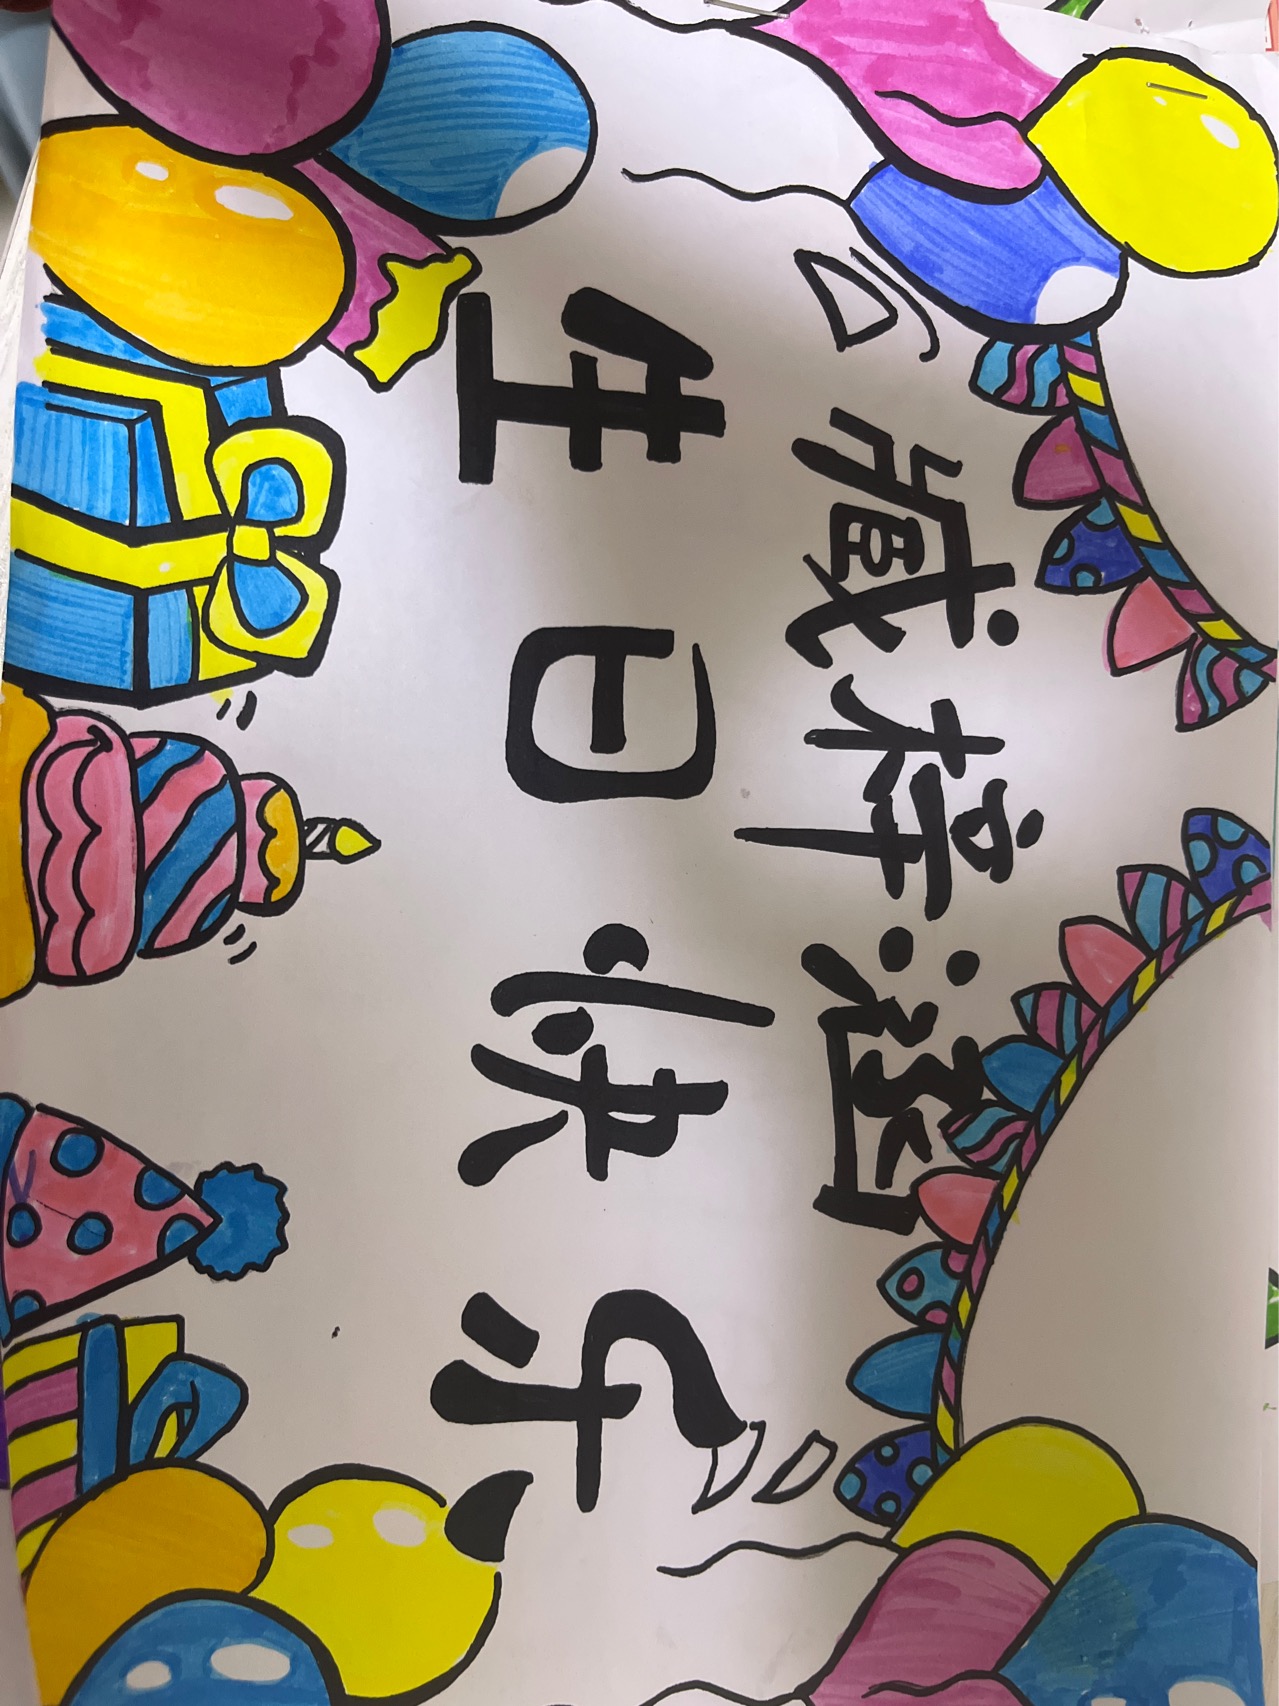 臧梓涵
生日快乐